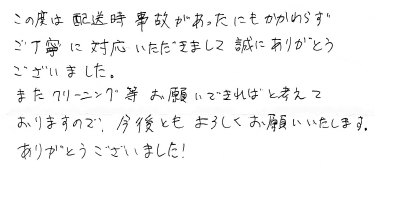 この度は配送時事故があったにもかかわらず
ご丁寧に対応いただきまして誠にありがとう
ございました。
またクリーニング等お願いできればと考えて
おりますので、今後ともよろしくお願いいたします。
ありがとうございました!